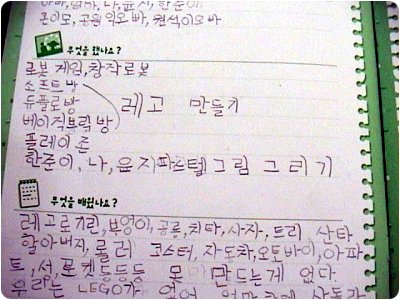 아빠, 엄마, 나, 윤지, 한준이
무엇을 했나요?
로봇 게임, 창작로봇
소프트방
듀플로방
레고 만들기
베이직브릭방
플레이존
한준이, 나, 윤지파스텔그림 그리기
무엇을 배웠나요?
레고로기린, 부엉이, 공룡, 치타, 사자, 트리 산타
할아버지, 롤러 코스터, 자동차, 오토바이, 아파
트, 서, 로켓등등등 못 만드는게 없다
LEGO가